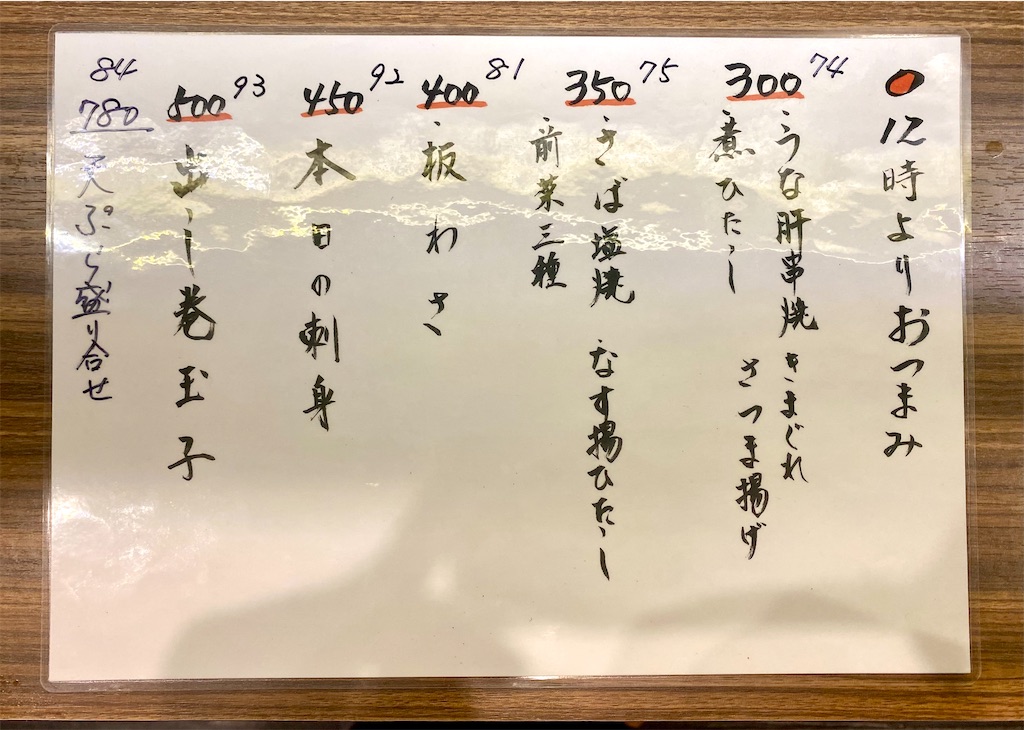 12時よりおつまみ
300 74
・うな肝串焼 きまぐれ
・煮ひたし さつま揚げ
350 75
・さば塩焼 ・なす揚ひたし
・前菜三種
400 81
・板わさ
450 92
本日の刺身
500 93
出し巻玉子
84
780
天ぷら盛り合せ